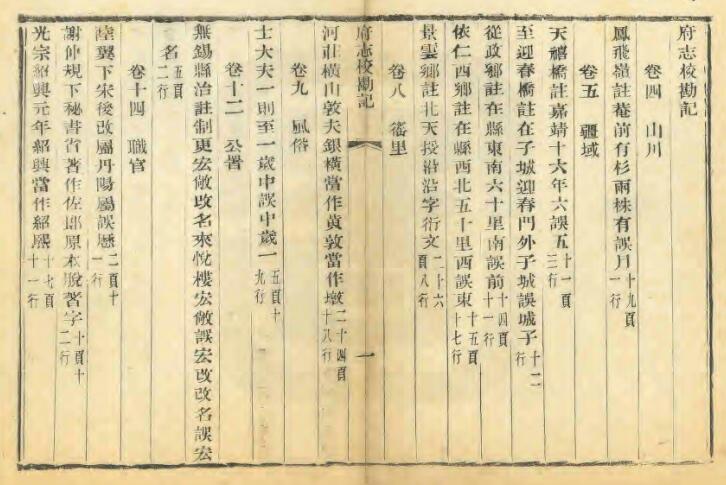 府志校勘記
卷四 山川
鳳飛嶺註菴前有杉兩株有誤月十九頁一行
卷五 疆域
天禧橋註嘉靖十六年六誤五十一頁三行
至迎春橋註在子城迎春門外子城誤城子十二行
從政鄉註在縣東南六十里南誤前十四頁十一行
依仁西鄉註在縣西北五十里西誤東十五頁十七行
景雲鄉註北天授沿沿字衍文二十六頁八行
卷八
府志校勘記 一
河莊橫山敦夫銀橫當作黄敦當作墩二十四頁十八行
卷九 風俗
士大夫一則至一歲中誤中歲一五頁十九行
卷十二 公署
無錫縣治註制更宏敞改名來悅樓宏敞誤宏改改名誤宏
名五頁二行
卷十四 職官
陸翼下宋後改屬丹陽屬誤歷二頁十一行
謝仲規下秘書省著作佐郎原本脫著字十頁十二行
光宗紹興元年紹興當作紹熙十七頁十一行